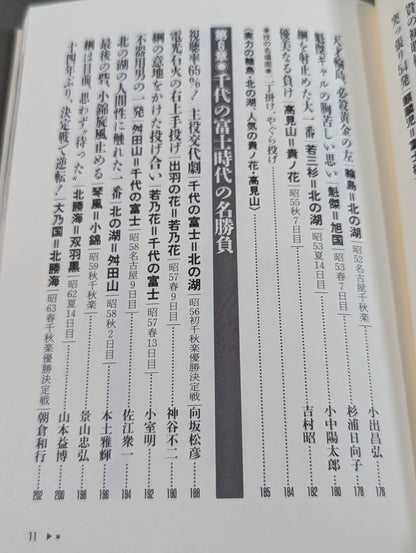 天才輪島、必殺黄金の左│輪島＝北の湖│昭52名古屋千秋楽……小出昌弘 176
魁傑ギャルの胸苦しい思い│魁傑＝旭国│昭53春7日目……杉浦日向子 178
綱を射止めた大一番│若三杉＝北の湖│昭53夏14日目……小中陽太郎 180
優美なる負け│高見山＝貴ノ花│昭55秋7日目……吉村昭 182
184
〈実力の輪島・北の湖、人気の貴ノ花・高見山〉
185
第6章●千代の富士時代の名勝負
視聴率65％！主役交代劇│千代の富士＝北の湖│昭56初千秋楽優勝決定戦│……向坂松彦 188
電光石火の右上手投げ│出羽の花＝若乃花│昭57春9日目……神谷不二 190
綱の意地をかけた投げ合い│若乃花＝千代の富士│昭57春13日目……小室明 192
不器用男の一発│舛田山＝千代の富士│昭58名古屋9日目……佐江衆一 194
北の湖の人間性に触れた一番│北の湖＝舛田山│昭58秋2日目……本土雅輝 196
最後の砦、小錦旋風止める│琴風＝小錦│昭59秋千秋楽……景山忠弘 198
綱は目前、思わず〝待った〟│北勝海＝双羽黒│昭62夏14日目……山本益博 200
十四年ぶり、決定戦で逆転！│大乃国＝北勝海│昭63春千秋楽優勝決定戦│……朝倉和行 202
11 ▶＊